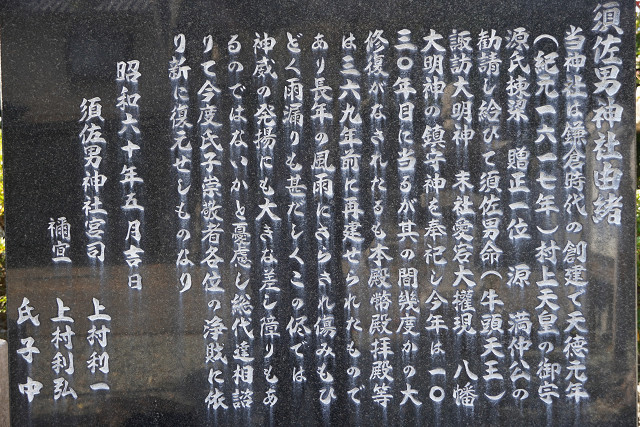 須佐男神社由緒
当神社は鎌倉時代の創建で天徳元年
(紀元一六一七年)村上天皇の御宇
源氏棟梁 贈正一位 源 満仲公の
勧請し給ひて須佐男命(牛頭天王)
諏訪大明神 末社愛宕大権現 八幡
大明神の鎮守神と奉祀し今年は一〇
三〇年目に当るが其の間幾度かの大
修復がなされたるも本殿幣殿拝殿等
は三六九年前に再建せられたもので
あり長年の風雨にさらされ傷みもひ
どく雨漏りも甚だしくこの侭では
神威の発揚にも大きな差し障りもあ
るのではないかと憂慮し総代達相諮
りて今度氏子崇敬者各位の浄財に依
り新に復元せしものなり
昭和六十年五月吉日
須佐男神社宮司 上村利一
禰宜 上村利弘
氏子中